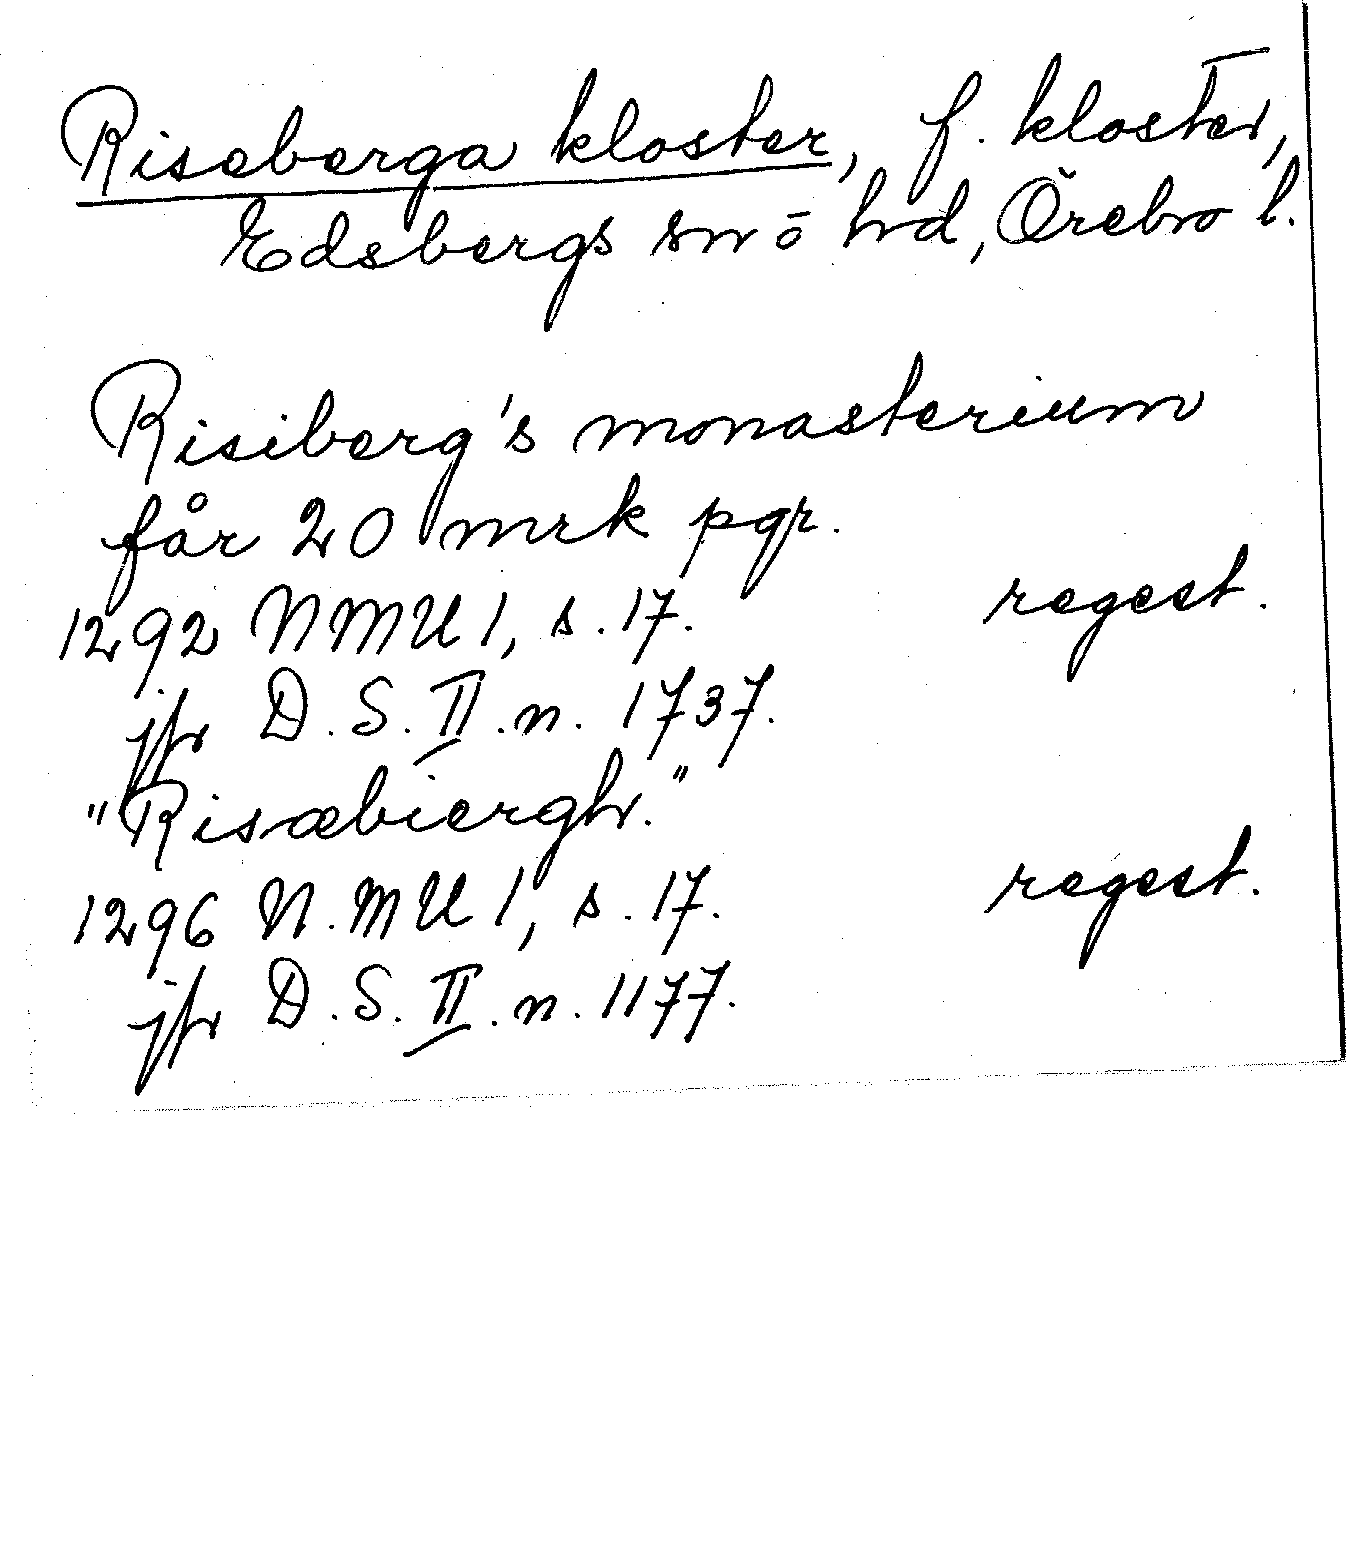 Riseberga kloster, f. kloster,
Edsbergs sn ō hd, Örebro l.
Risiberg's monasterium
får 20 mrk pgr.
1292 NMU 1, s. 17. regest.
jfr D. S. II. n. 1737.
"Risæbiergh."
1296 N. MU 1, s. 17. regest.
jfr D. S. II. n. 1177.